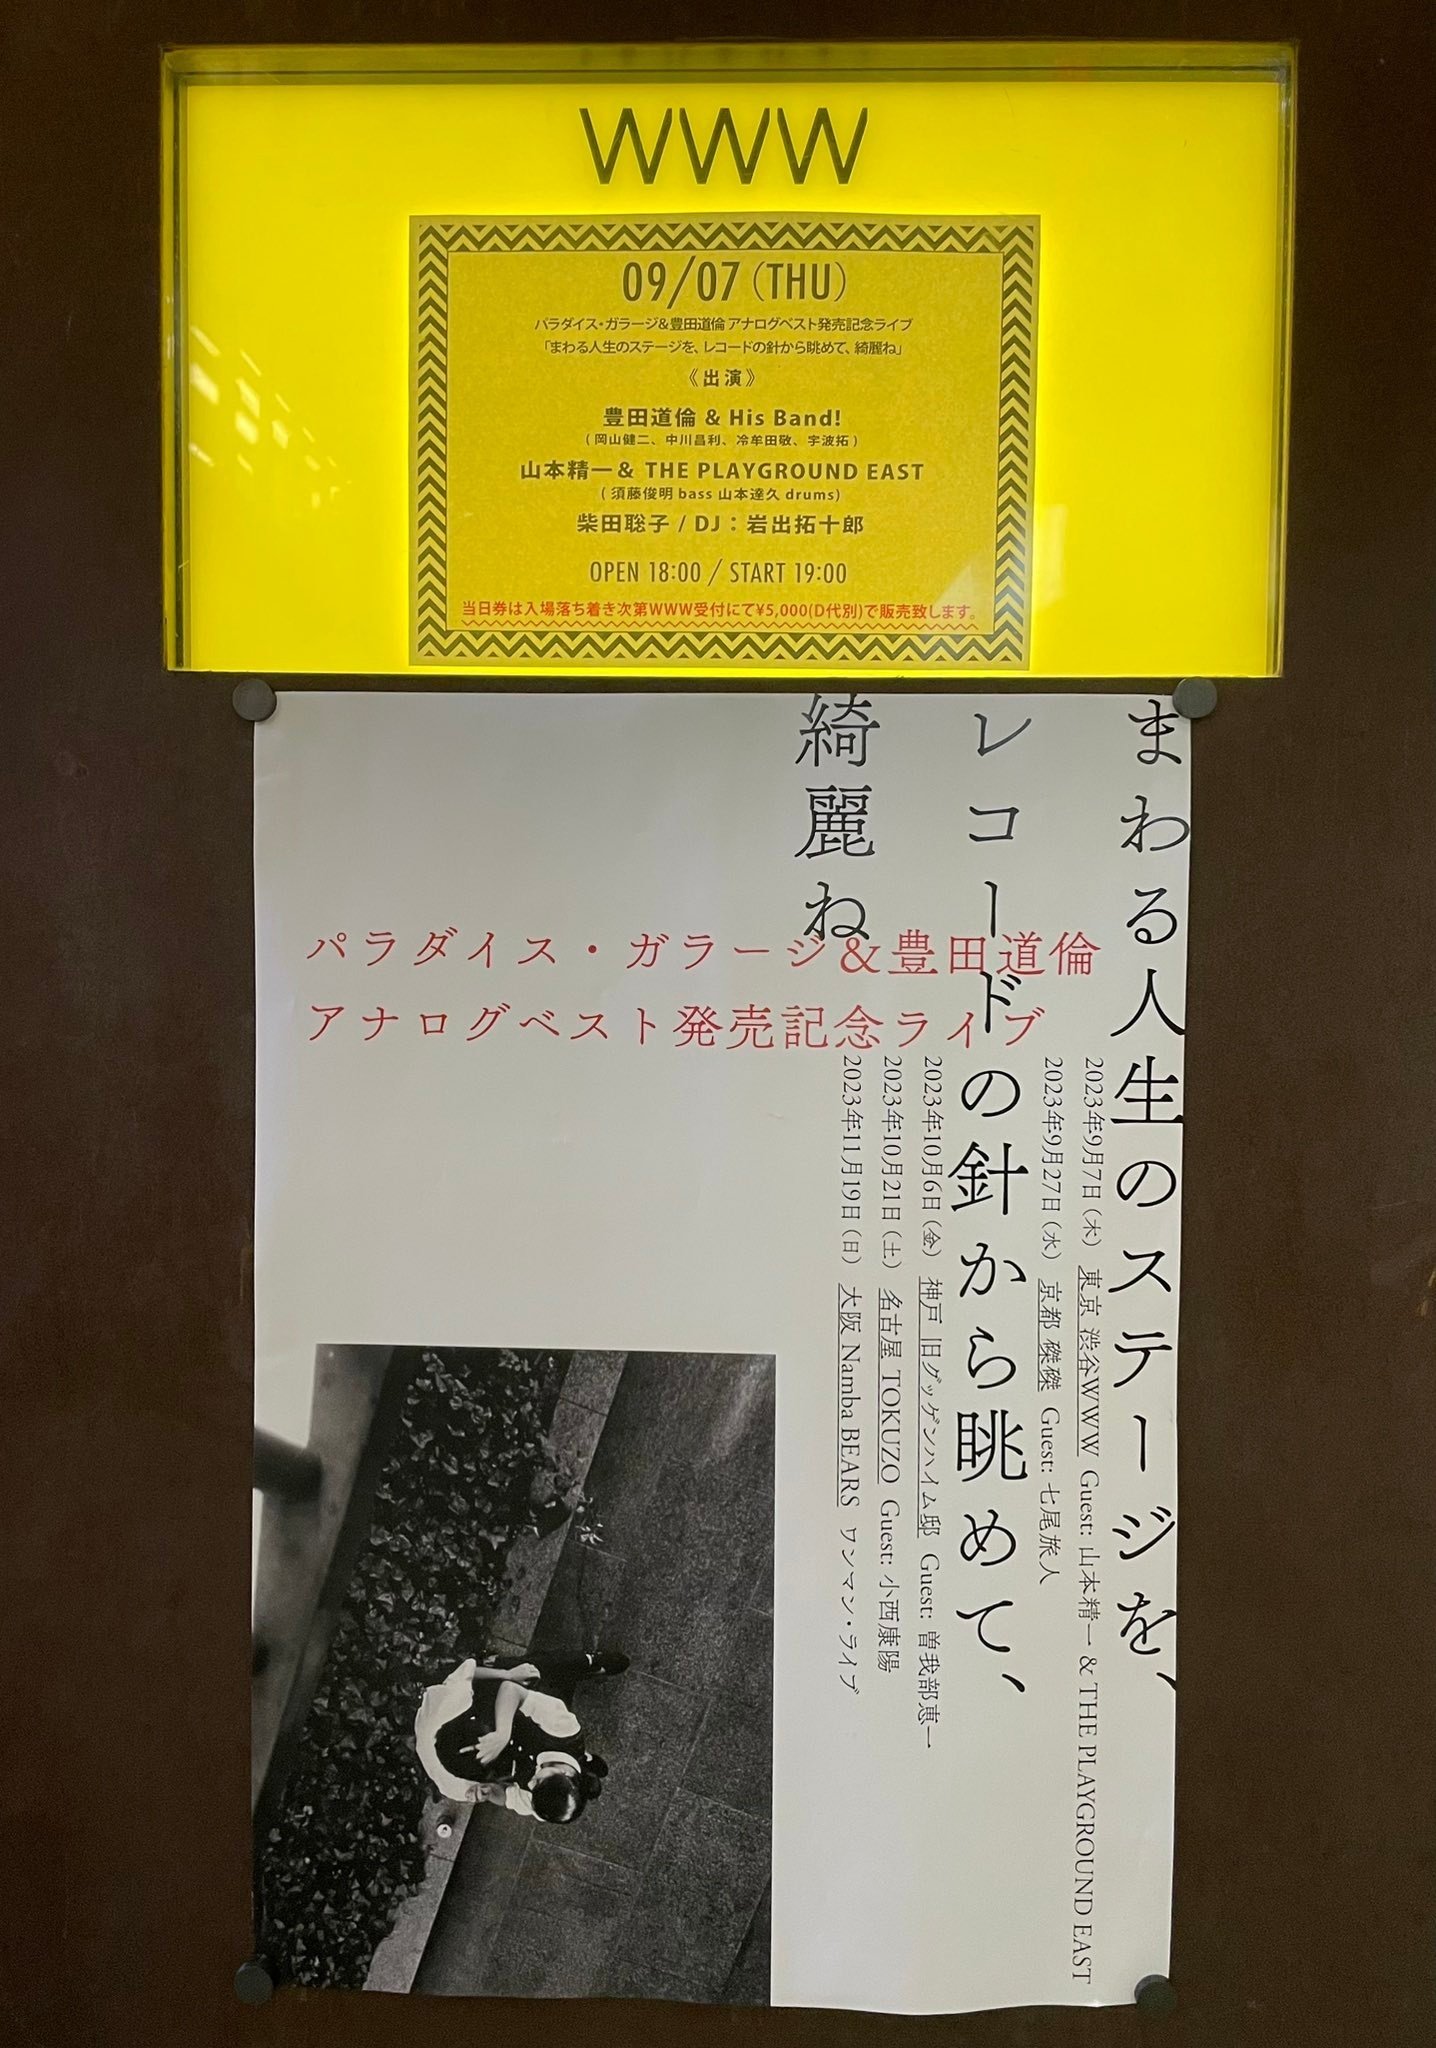 WWW
09/07(THU)
パラダイス・ガラージ&豊田道倫 アナログベスト発売記念ライブ
「まわる人生のステージを、レコードの針から眺めて、綺麗ね」
《出演》
豊田道倫 & His Band!
(岡山健二、中川昌利、冷牟田敬、宇波拓)
山本精一& THE PLAYGROUND EAST
(須藤俊明 bass 山本達久 drums)
柴田聡子 / DJ:岩出拓十郎
OPEN 18:00 / START 19:00
当日券は入場落ち着き次第WWW受付にて¥5,000(D代別)で販売致します。
まわる人生のステージを、
レコードの針から眺めて、
綺麗ね
パラダイス・ガラージ&豊田道倫
アナログベスト発売記念ライブ
2023年9月7日(木) 東京 渋谷WWW Guest: 山本精一 & THE PLAYGROUND EAST
2023年9月27日(水) 京都 磔磔 Guest: 七尾旅人
2023年10月6日(金) 神戸 旧グッゲンハイム邸 Guest: 曽我部恵一
2023年10月21日(土) 名古屋 TOKUZO Guest: 小西康陽
2023年11月19日(日) 大阪 Namba BEARS ワンマン・ライブ